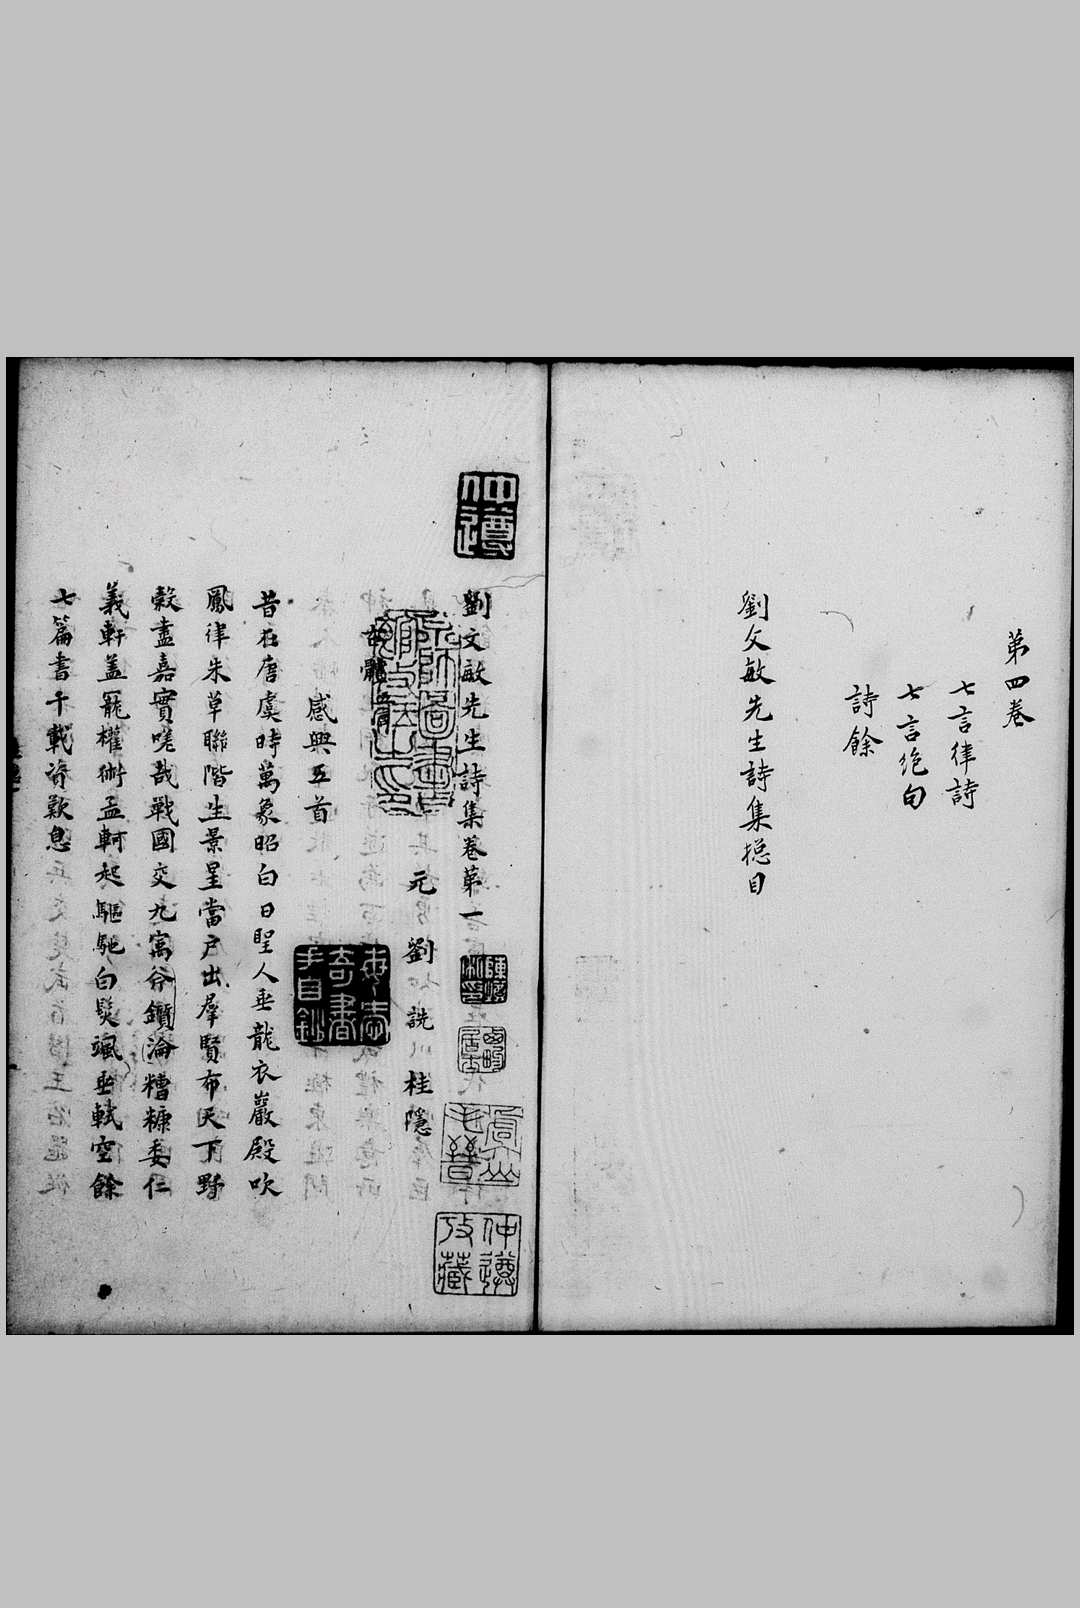 第四卷
七言律詩
七言絶句
詩餘
劉文敏先生詩集摠目
仲遵
劉文敏先生詩集卷第一
元 劉詵 桂隱
古體
感興五首
昔在唐虞時萬象昭白日聖人垂龍衣巖殿吹
鳳律朱草聯階生景星當户出羣賢布天下野
穀盡嘉實嗟哉戰國交九㝢谷鑽淪糟糠委仁
義軒盖寵權術孟軻起驅馳白髮颯垂軾空餘
七篇書千載資歎息
京師圖書
奇書
手自鈔
虞山
毛晉
仲遵
收藏